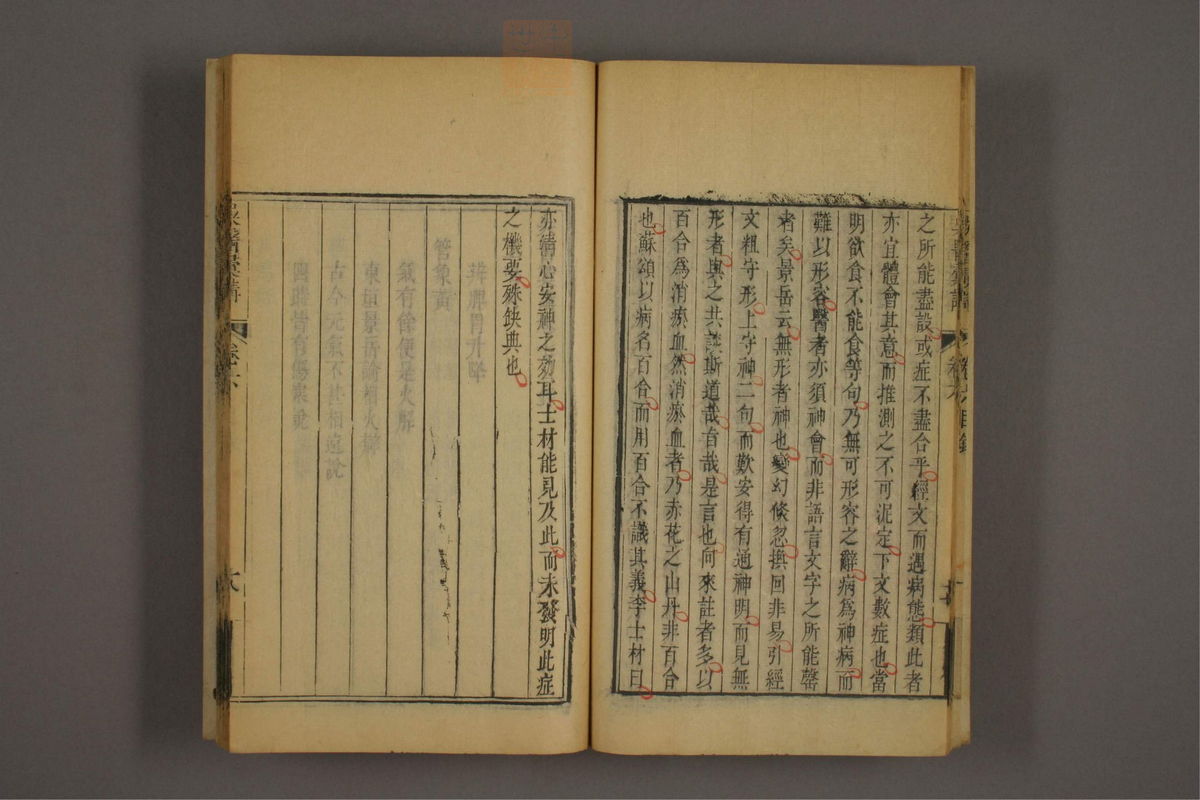 之所能盡設或症不盡合乎經文而遇病態類此者
亦宜體會其意而推測之不可泥定下文數症也當
明欲食不能食等句乃無可形容之辭病為神病而
難以形容醫者亦須神會而非語言文字之所能罄
者矣景岳云無形者神也變幻倐忽挽回非易引經
文粗守形上守神二句而歎安得有通神明而見無
形者與之共談斯道哉旨哉是言也向來註者多以
百合為消瘀血然消瘀血者乃赤花之山丹非百合
也蘇頌以病名百合而用百合不識其義李士材曰
亦清心安神之効耳士材能見及此而未發明此症
之機要殊缺典也
卷六